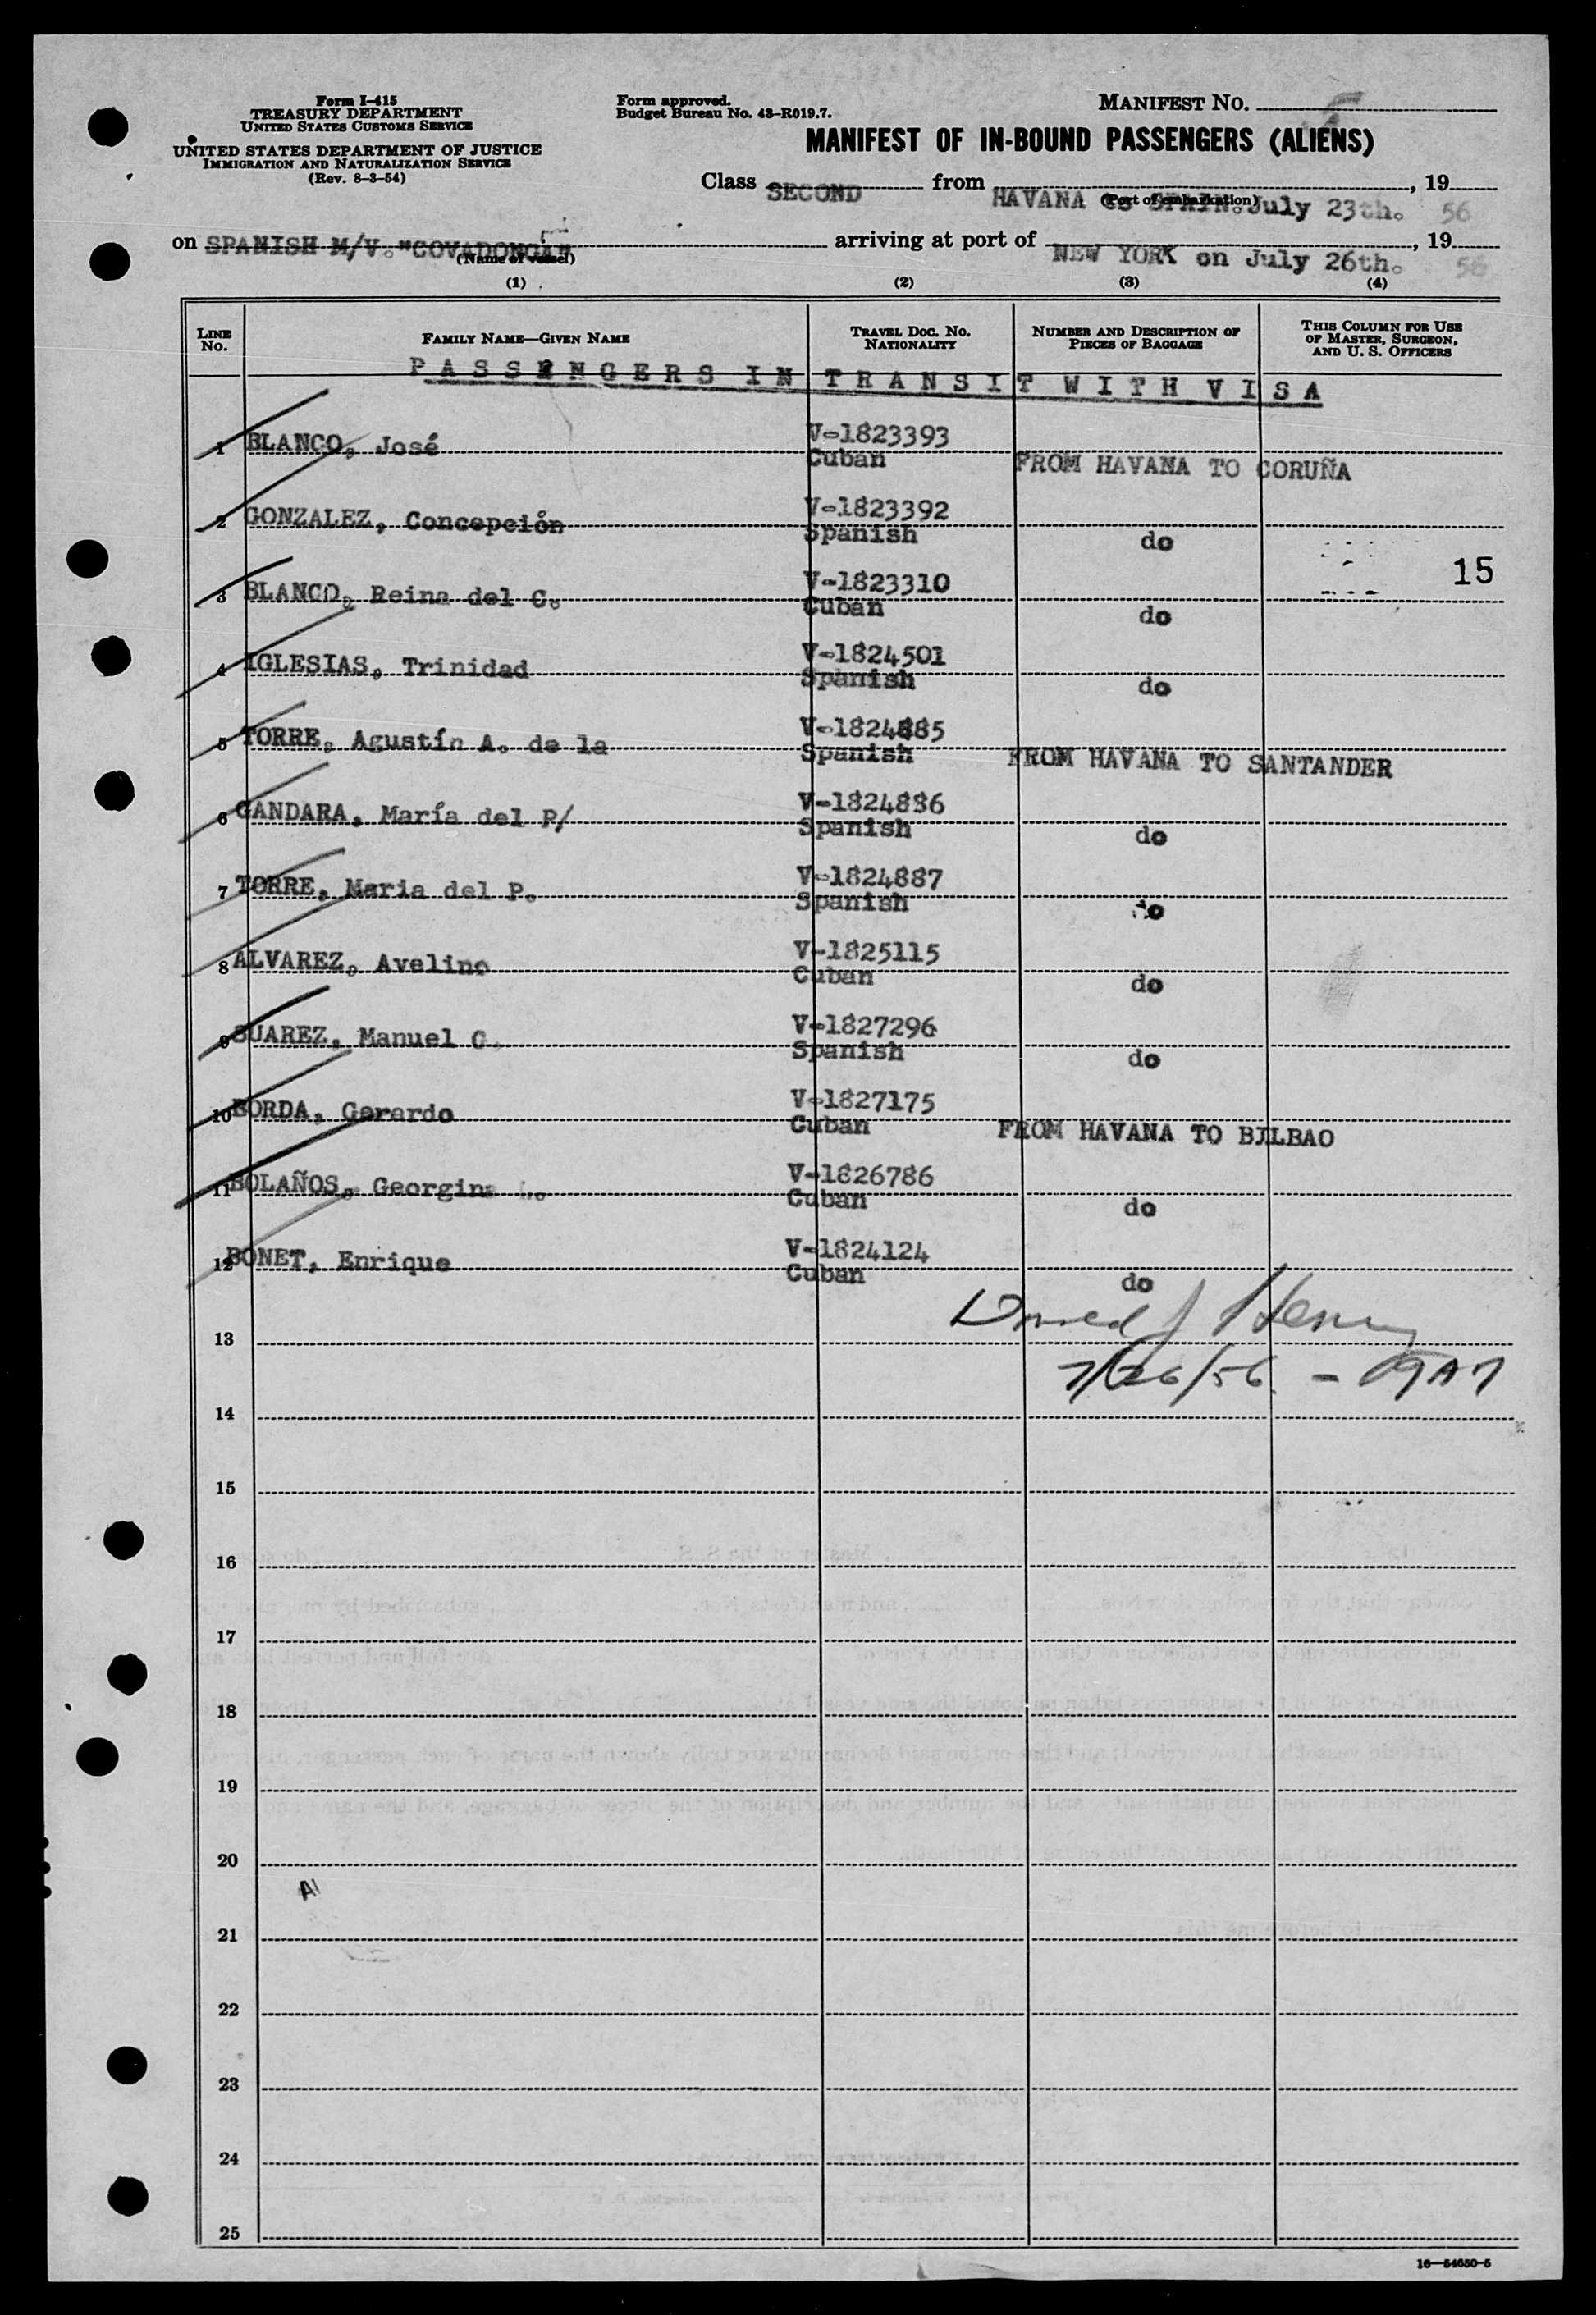 Form I-415
TREASURY DEPARTMENT
UNITED STATES CUSTOMS SERVICE
UNITED STATES DEPARTMENT OF JUSTICE
IMMIGRATION AND NATURALIZATION SERVICE
(Rev. 8-3-54)
Form approved.
Budget Bureau No. 43-R019.7.
MANIFEST NO.
MANIFEST OF IN-BOUND PASSENGERS (ALIENS)
Class SECOND from HAVANA to SPAIN.July 23th. , 19 56
(Port of embarkation)
on SPANISH M/V. "COVADONGA" arriving at port of NEW YORK on July 26th. , 19 56
(Name of vessel)
(1) (2) (3) (4)
LINE NO. FAMILY NAME—GIVEN NAME TRAVEL DOC. NO. NATIONALITY NUMBER AND DESCRIPTION OF PIECES OF BAGGAGE THIS COLUMN FOR USE OF MASTER, SURGEON, AND U. S. OFFICERS
PASSENGERS IN TRANSIT WITH VISA
1 BLANCO, José V-1823393
Cuban FROM HAVANA TO CORUÑA
2 GONZALEZ, Concepción V-1823392
Spanish do
15
3 BLANCO, Reina del C. V-1823310
Cuban do
4 IGLESIAS, Trinidad V-1824501
Spanish do
5 TORRE, Agustín A. de la V-1824885
Spanish FROM HAVANA TO SANTANDER
6 GANDARA, María del P/ V-1824886
Spanish do
7 TORRE, Maria del P. V-1824887
Spanish do
8 ALVAREZ, Avelino V-1825115
Cuban do
9 SUAREZ, Manuel C. V-1827296
Spanish do
10 BORDA, Gerardo V-1827175
Cuban FROM HAVANA TO BILBAO
11 BOLAÑOS, Georgina V-1826786
Cuban do
12 BONET, Enrique V-1824124
Cuban do
13
7/26/56 -
14
15
16
17
18
19
20
A1
21
22
23
24
25
16—54650-5